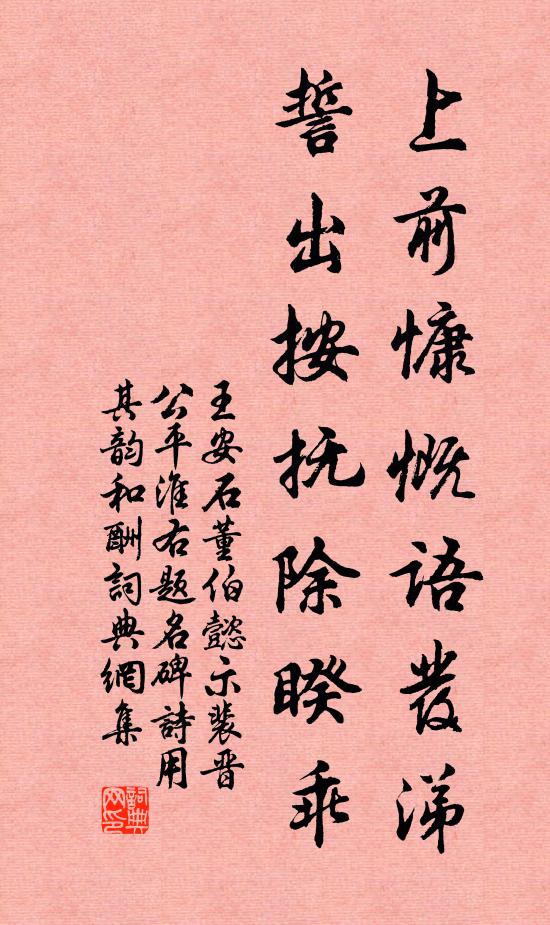 上前慷慨語發涕
誓出按抚除暌乖
王安石董伯懿示裴晋
公平淮右题名碑詩用
其韵和酬詞典網集
詞典网印